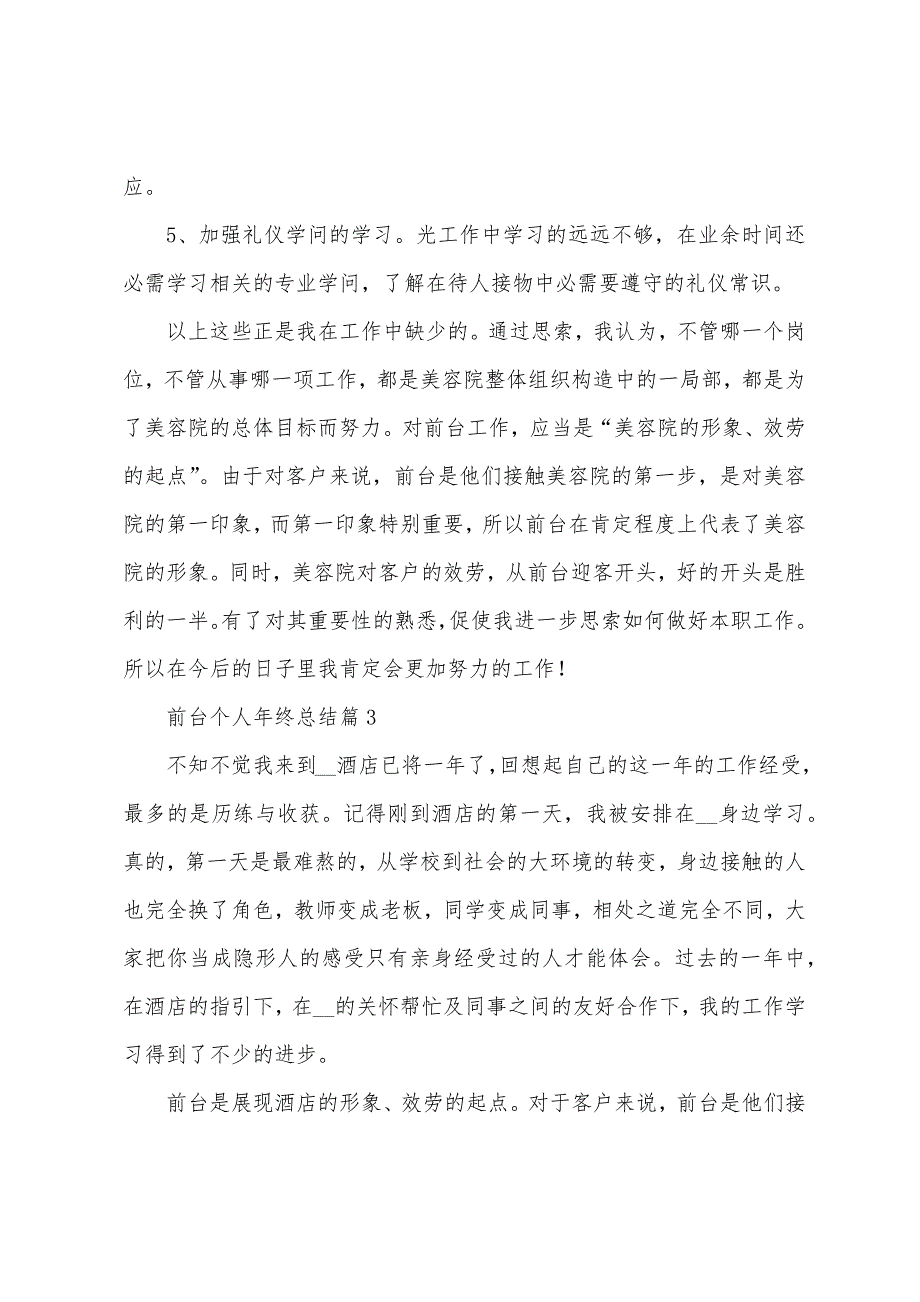 应。
5、加强礼仪学问的学习。光工作中学习的远远不够，在业余时间还
必需学习相关的专业学问，了解在待人接物中必需要遵守的礼仪常识。
以上这些正是我在工作中缺少的。通过思索，我认为，不管哪一个岗
位，不管从事哪一项工作，都是美容院整体组织构造中的一局部，都是为
了美容院的总体目标而努力。对前台工作，应当是“美容院的形象、效劳
的起点”。由于对客户来说，前台是他们接触美容院的第一步，是对美容
院的第一印象，而第一印象特别重要，所以前台在肯定程度上代表了美容
院的形象。同时，美容院对客户的效劳，从前台迎客开头，好的开头是胜
利的一半。有了对其重要性的熟悉，促使我进一步思索如何做好本职工作。
所以在今后的日子里我肯定会更加努力的工作！
前台个人年终总结篇3
不知不觉我来到__酒店已将一年了，回想起自己的这一年的工作经受，
最多的是历练与收获。记得刚到酒店的第一天，我被安排在__身边学习。
真的，第一天是最难熬的，从学校到社会的大环境的转变，身边接触的人
也完全换了角色，教师变成老板，同学变成同事，相处之道完全不同，大
家把你当成隐形人的感受只有亲身经受过的人才能体会。过去的一年中，
在酒店的指引下，在__的关怀帮忙及同事之间的友好合作下，我的工作学
习得到了不少的进步。
前台是展现酒店的形象、效劳的起点。对于客户来说，前台是他们接